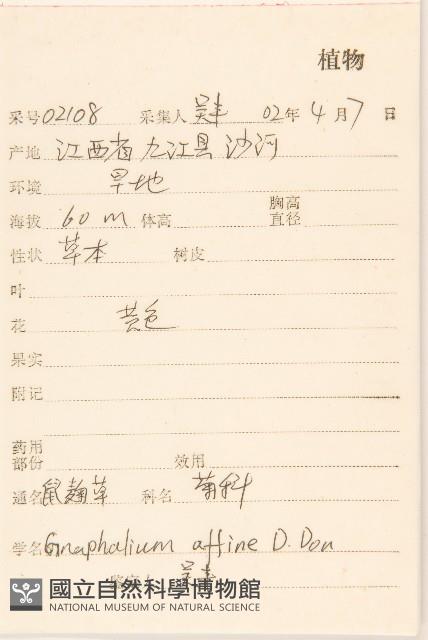 植物
采号 02108 采集人 吴丰 02年 4月 7日
产地 江西省九江县沙河
环境 旱地
海拔 60 m 体高 胸高直径
性状 草本 树皮
叶
花 黄色
果实
附记
药用部份 效用
通名 鼠麹草 科名 菊科
学名 Gnaphalium affine D. Don
國立自然科學博物館
NATIONAL MUSEUM OF NATURAL SCIENCE